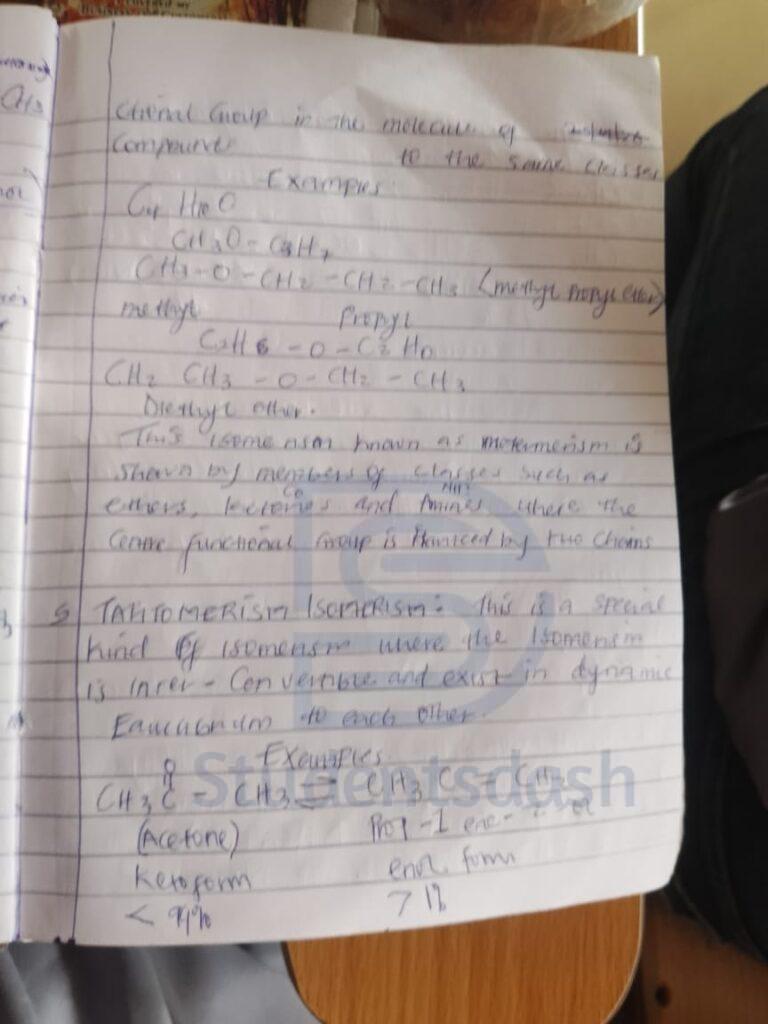 CH3
ctional Group in the molecule of
Compounds to the same classes
Examples
C4 H10 O
CH3O - C3H7
CH3-O-CH2-CH2-CH3 (methyl propyl ether)
methyl Propyl
C2H5 - O - C2H5
CH2 CH3 - O - CH2 - CH3
Diethyl ether.
This isomerism known as metermerism is
shown by members of classes such as
CO NH
ethers, ketones and Amines where the
Centre functional Group is by two chains
5 TAUTOMERISM ISOMERISM: This is a special
kind of isomerism where the isomerism
is inter-Convertible and exist in dynamic
Equilibrium to each other.
Examples
O
CH3 C - CH3 ⇌ CH3 C = CH2
(Acetone) Prop-1 ene- 2- ol
Ketoform enol form
< 99% > 1%
Studentsdash